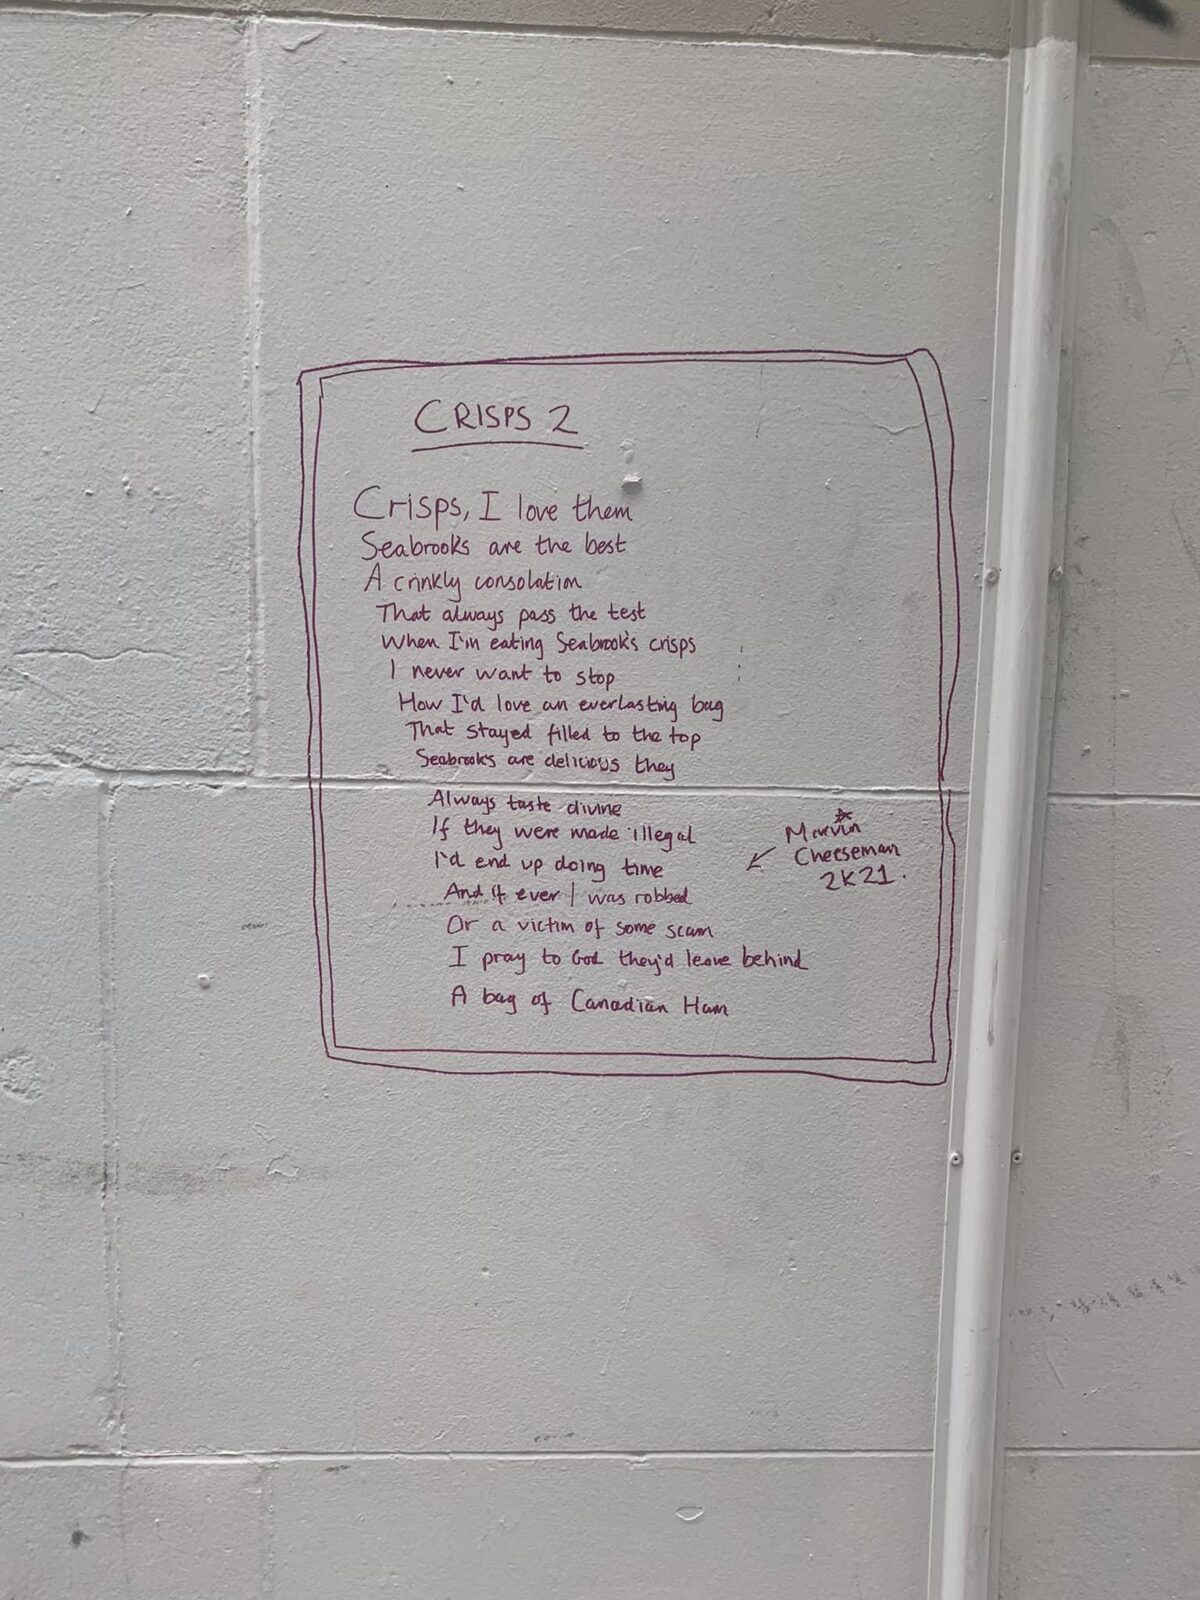 CRISPS 2
Crisps, I love them
Seabrook's are the best
A crinkly consolation
That always pass the test
When I'm eating Seabrook's crisps
I never want to stop
How I'd love an everlasting bag
That stayed filled to the top
Seabrook's are delicious they
Always taste divine
If they were made illegal
I'd end up doing time
And if ever I was robbed
Or a victim of some scam
I pray to God they'd leave behind
A bag of Canadian Ham
Marvin
Cheeseman
2K21.